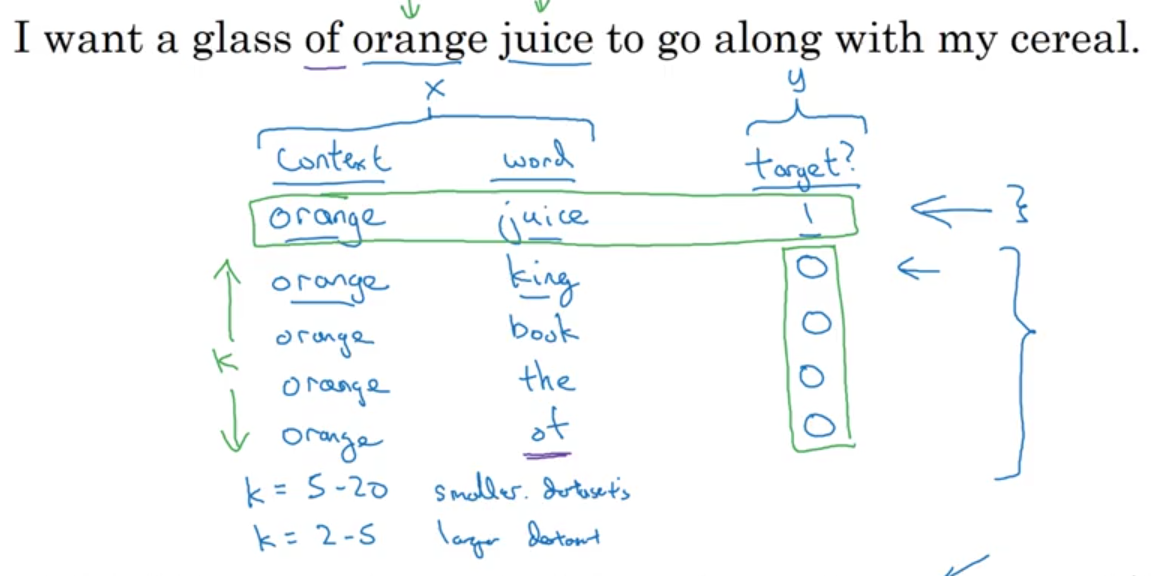 I want a glass of orange juice to go along with my cereal.
x y
context word target?
orange juice 1
orange king 0
orange book 0
k orange the 0
orange of 0
k = 5-20 smaller. datasets
k = 2-5 larger